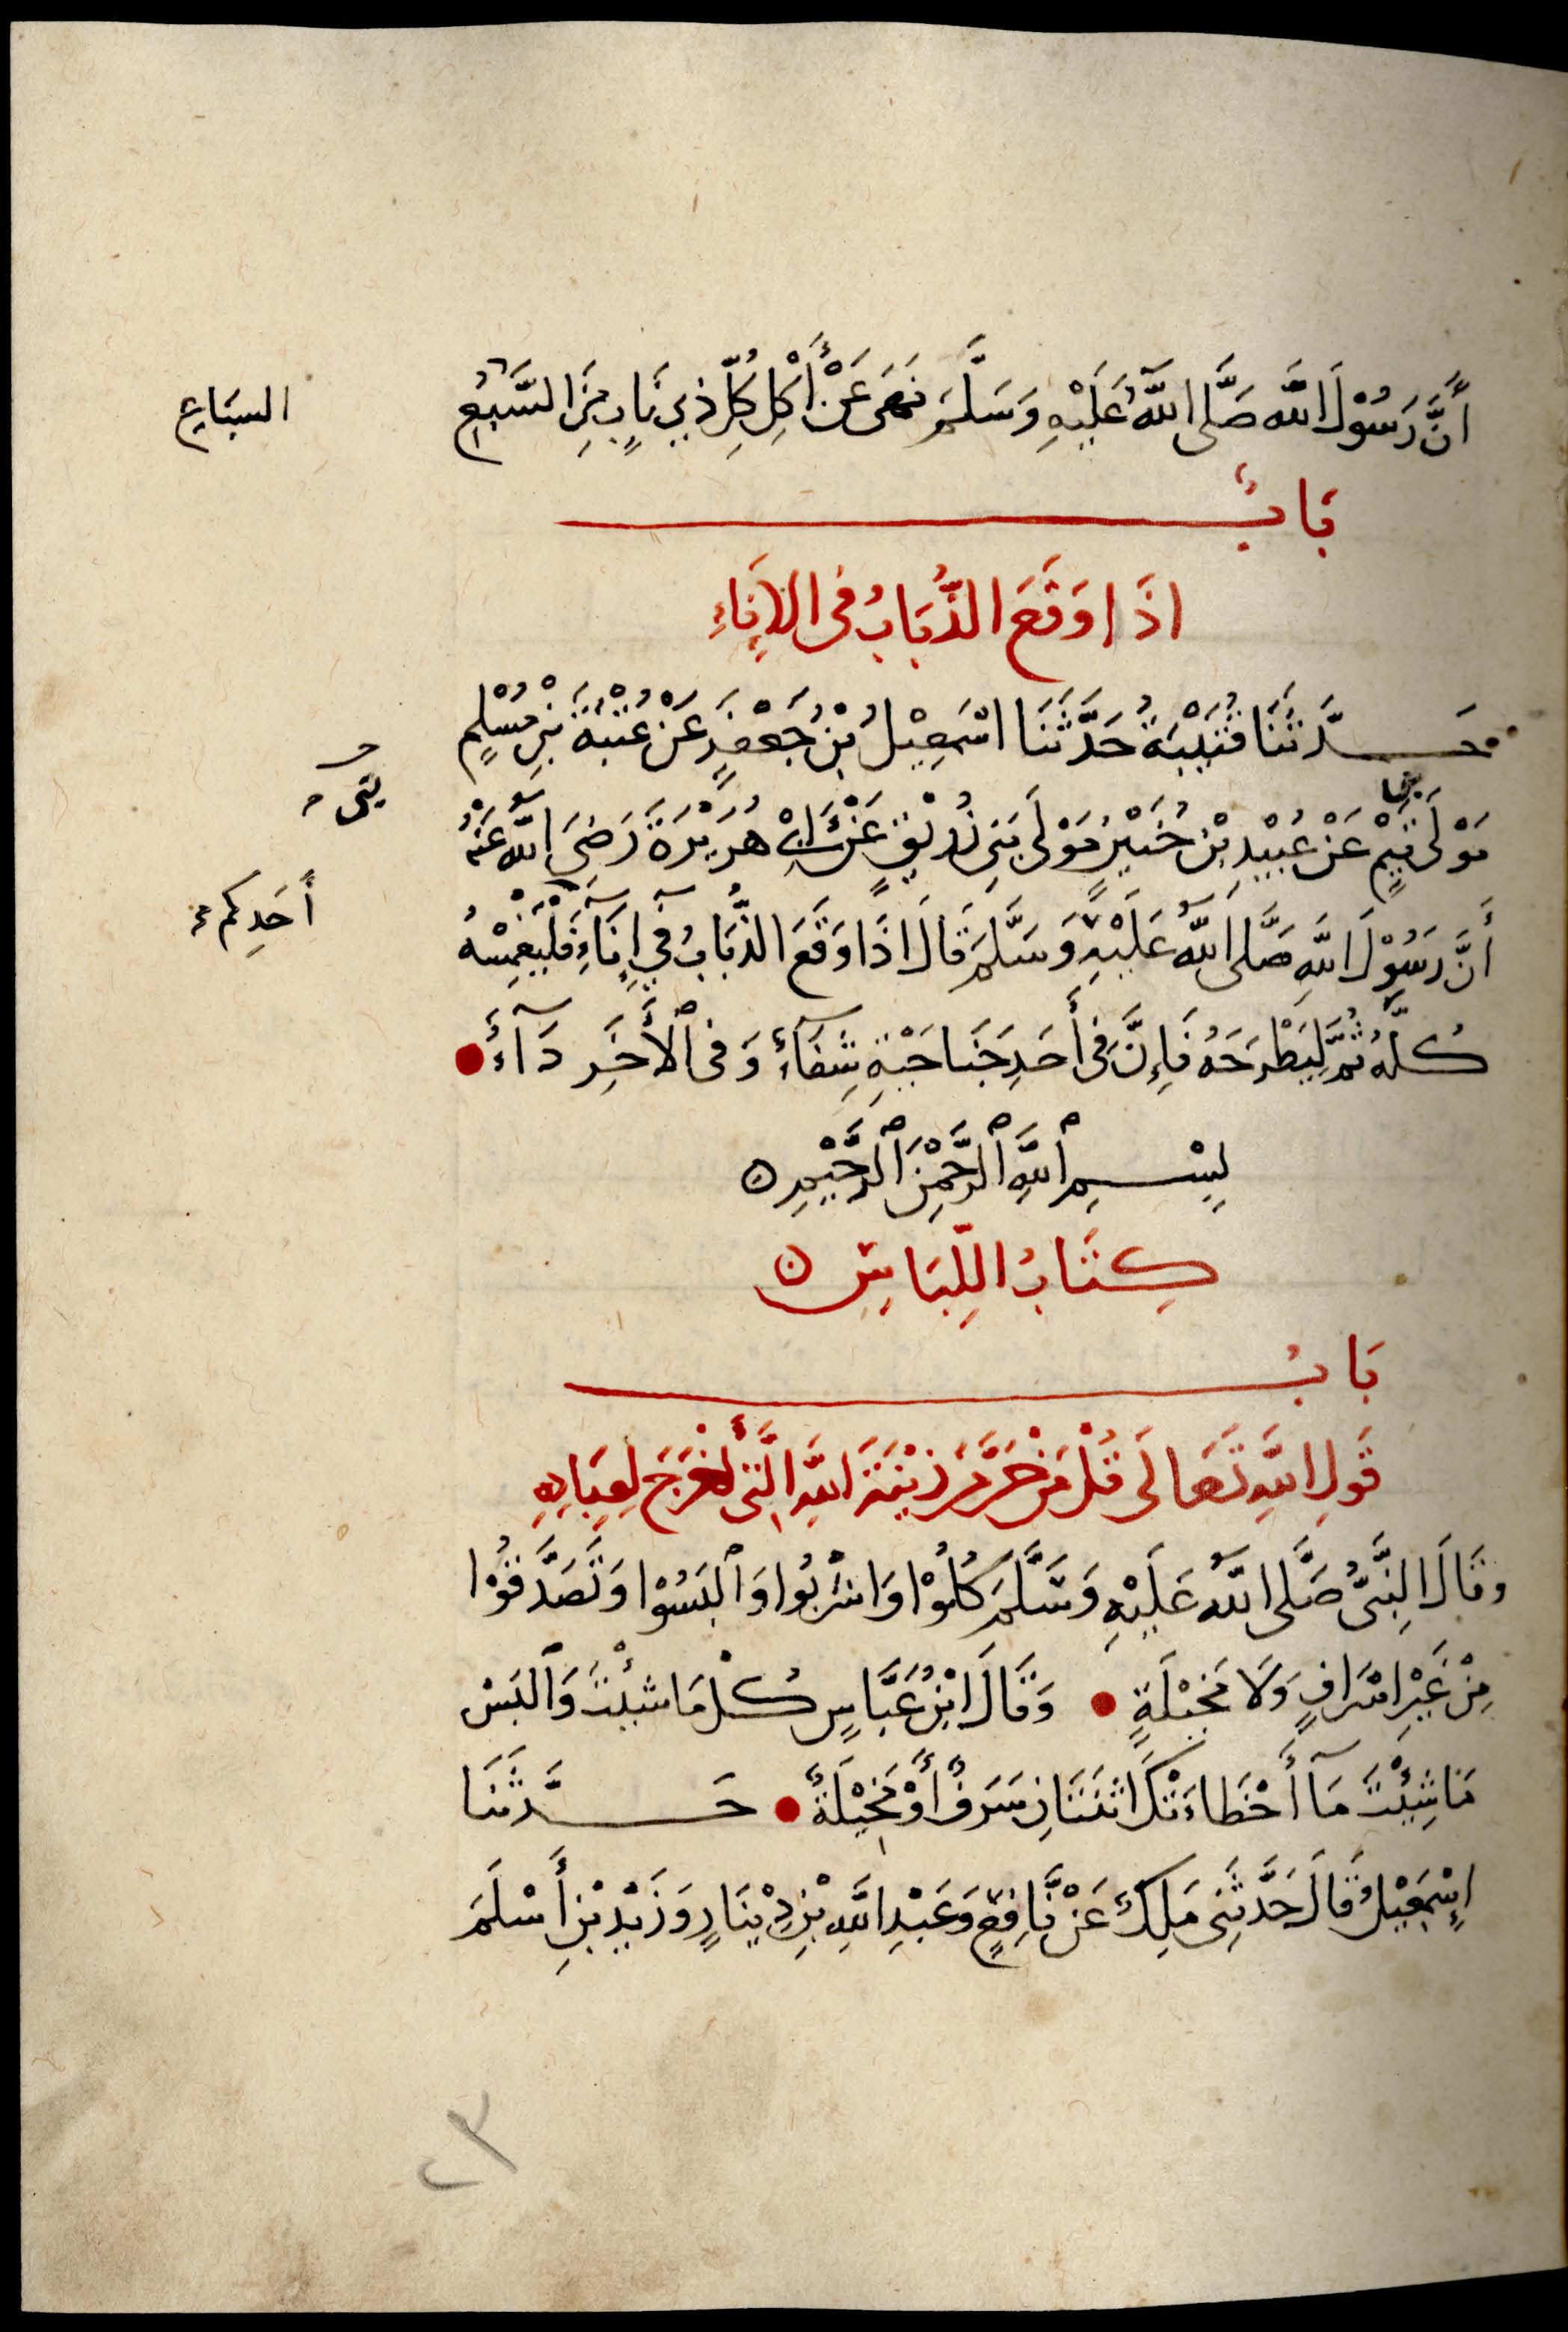 أَنَّ رَسُوْلَ اللَّهِ صَلَّى اللَّهُ عَلَيْهِ وَسَلَّمَ نَهَى عَنْ أَكْلِ كُلِّ ذِي نَابٍ مِنَ السَّبُعِ
السباع
بَابٌ
اذَا وَقَعَ الذُّبَابُ فى الإِنَاءِ
حَدَّثَنَا قُتَيْبَةُ حَدَّثَنَا اسْمَعِيْلُ بْنُ جَعْفَرٍ عَنْ عُتْبَةَ بْنِ مُسْلِمٍ
مَوْلَى تَيْمٍ عَنْ عُبَيْدِ بْنِ حُنَيْنٍ مَوْلَى بَنِى زُرَيْقٍ عَنْ أَبِىْ هُرَيْرَةَ رَضِىَ اللَّهُ عَنْهُ
بنى
أَنَّ رَسُوْلَ اللَّهِ صَلَّى اللَّهُ عَلَيْهِ وَسَلَّمَ قَالَ اذَا وَقَعَ الذُّبَابُ فِى إِنَآءِ فَلْيَغْمِسْهُ
أَحَدِكم
كُلَّهُ ثُمَّ لِيَطْرَحَهُ فَإِنَّ فِى أَحَدِ جَنَاحَيْهِ شِفَآءً وَفى الأَخَرِ دَآءً
بِسْمِ اللَّهِ الرَّحْمَنِ الرَّحِيْمِ
كِتَابُ اللِّبَاسِ
بَابُ
قَوْلِ اللَّهِ تَعَالَى قُلْ مَنْ حَرَّمَ زِيْنَةَ اللَّهِ الَّتِى أَخْرَجَ لِعِبَادِهِ
وقَالَ النَّبِىُّ صَلَّى اللَّهُ عَلَيْهِ وَسَلَّمَ كُلُوْا وَاشْرَبُوا وَالْبَسُوْا وَتَصَدَّقُوْا
مِنْ غَيْرِ اسْرَافٍ وَلَا مَخِيْلَةٍ وَقَالَ ابْنُ عَبَّاسٍ كُلْ مَا شِئْتَ وَالْبَسْ
مَا شِئْتَ مَآ أَخْطَاءَتْكَ اثْنَتَانِ سَرَفٌ أَوْ مَخِيْلَةٌ حَدَّثَنَا
إِسْمَعِيْلُ قَالَ حَدَّثَنِى مَلِكٌ عَنْ نَّافِعٍ وَعَبْدِ اللَّهِ بْنِ دِيْنَارٍ وَزَيْدِ بْنِ أَسْلَمَ
٢٣